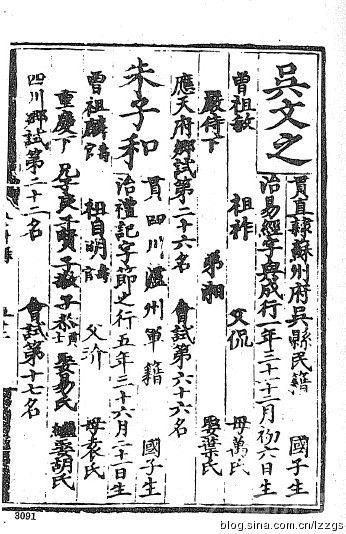 吳文之
貫直隸蘇州府吳縣民籍 國子生
治易經字與成行一年三十十二月初六日生
曾祖敏 祖祚 父侃 母萬氏
嚴侍下 弟湘 娶葉氏
應天府鄉試第二十六名 會試第六十六名
朱子和
貫四川瀘州軍籍 國子生
治禮記字節之行五年三十六月二十一日生
曾祖麟 祖自明 父介 母袁氏
重慶下 娶易氏 繼娶胡氏
四川鄉試第二十二名 會試第十七名
3091
blog.sina.com.cn/lzzgs